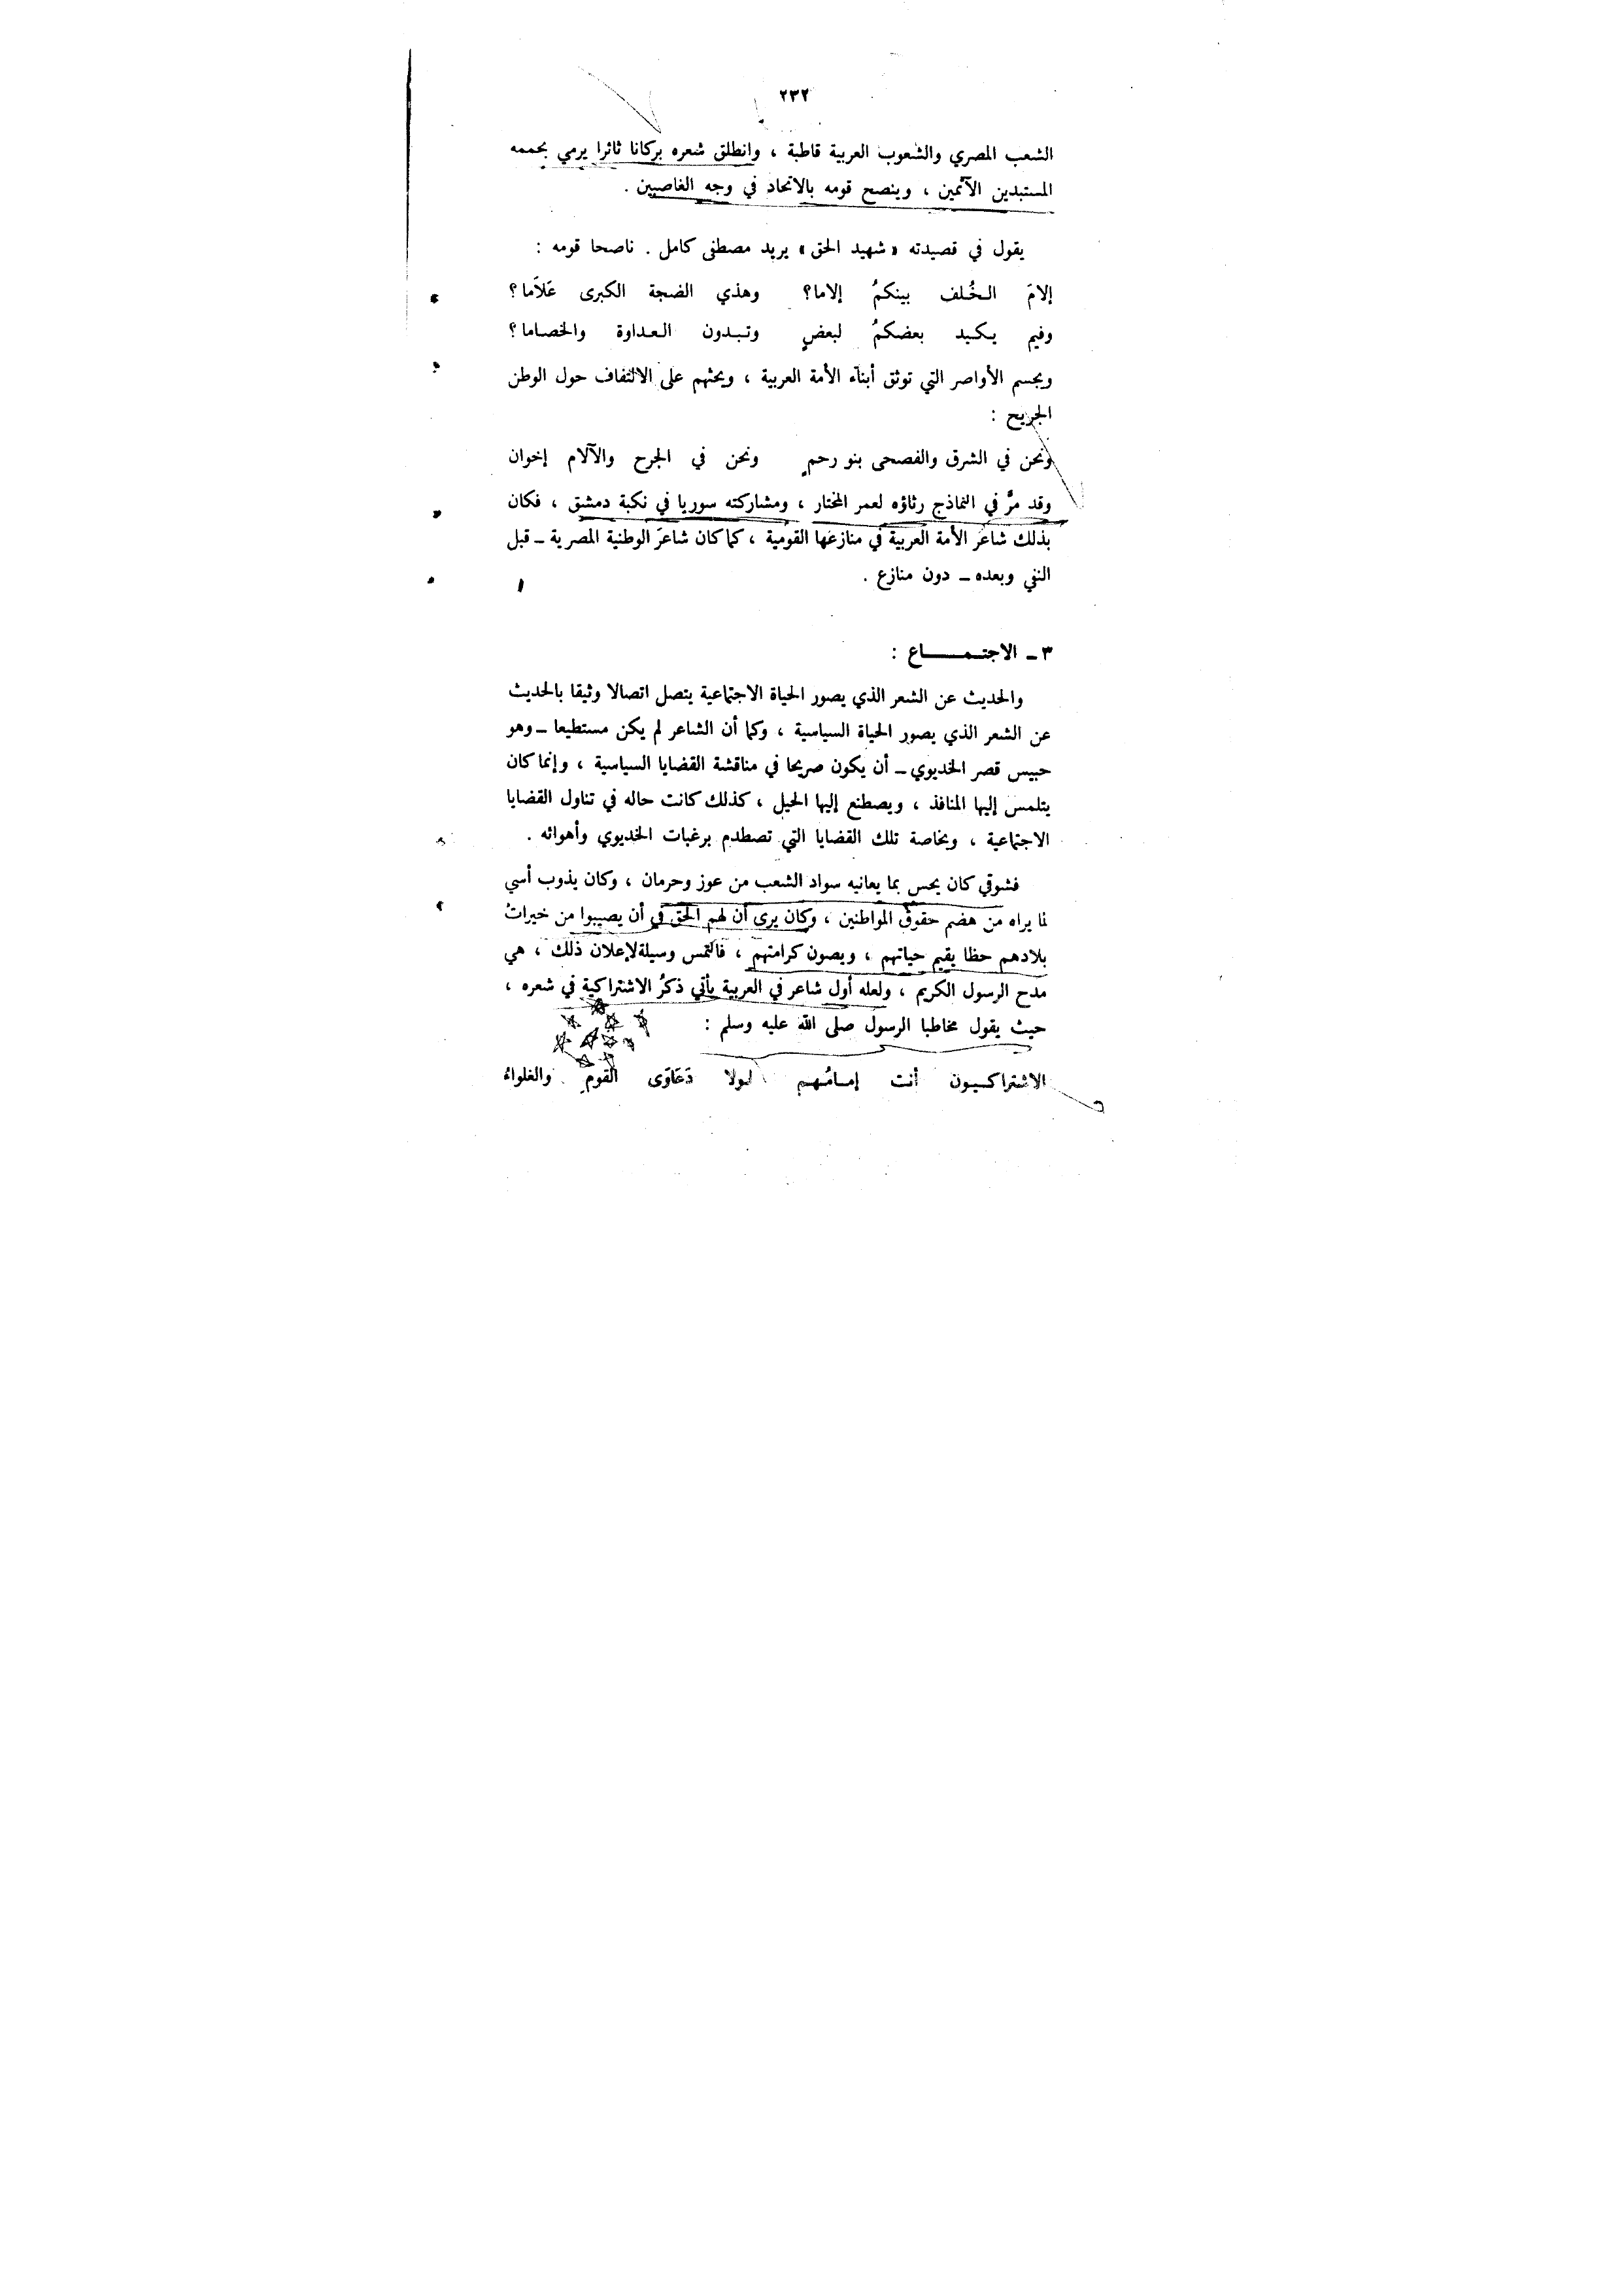 ٢٣٢
الشعب المصري والشعوب العربية قاطبة ، وانطلق شعره بركانا ثائرا يرمي بحممه
المستبدين الآثمين ، وينصح قومه بالاتحاد في وجه الغاصبين .
يقول في قصيدته « شهيد الحق » يريد مصطفى كامل . ناصحا قومه :
إلامَ الـخُـلف بينكمُ إلاما؟ وهذي الضجة الكبرى عَلاَما؟
وفيم يـكـيد بعضكمُ لبعضٍ وتـبـدون الـعـداوة والخصـاما؟
ويجسم الأواصر التي توثق أبناء الأمة العربية ، ويحثهم على الالتفاف حول الوطن
الجريح :
ونحن في الشرق والفصحى بنو رحمٍ ونحن في الجرح والآلام إخوان
وقد مرَّ في النماذج رثاؤه لعمر المختار ، ومشاركته سوريا في نكبة دمشق ، فكان
بذلك شاعرَ الأمة العربية في منازعها القومية ، كما كان شاعرَ الوطنية المصرية ــ قبل
النفي وبعده ــ دون منازع .
٣ ــ الاجتـمـــــاع :
والحديث عن الشعر الذي يصور الحياة الاجتماعية يتصل اتصالا وثيقا بالحديث
عن الشعر الذي يصور الحياة السياسية ، وكما أن الشاعر لم يكن مستطيعا ــ وهو
حبيس قصر الخديوي ــ أن يكون صريحا في مناقشة القضايا السياسية ، وإنما كان
يتلمس إليها المنافذ ، ويصطنع إليها الحيل ، كذلك كانت حاله في تناول القضايا
الاجتماعية ، وبخاصة تلك القضايا التي تصطدم برغبات الخديوي وأهوائه .
فشوقي كان يحس بما يعانيه سواد الشعب من عوز وحرمان ، وكان يذوب أسي
لما يراه من هضم حقوق المواطنين ، وكان يرى أن لهم الحق في أن يصيبوا من خيرات
بلادهم حظا يقيم حياتهم ، ويصون كرامتهم ، فالتمس وسيلة لإعلان ذلك ، هي
مدح الرسول الكريم ، ولعله أول شاعر في العربية يأتي ذكرُ الاشتراكية في شعره ،
حيث يقول مخاطبا الرسول صلى الله عليه وسلم :
الاشتراكـيـون أنت إمـامُـهـم لـولا دَعَاوَى القومِ والغلواءُ